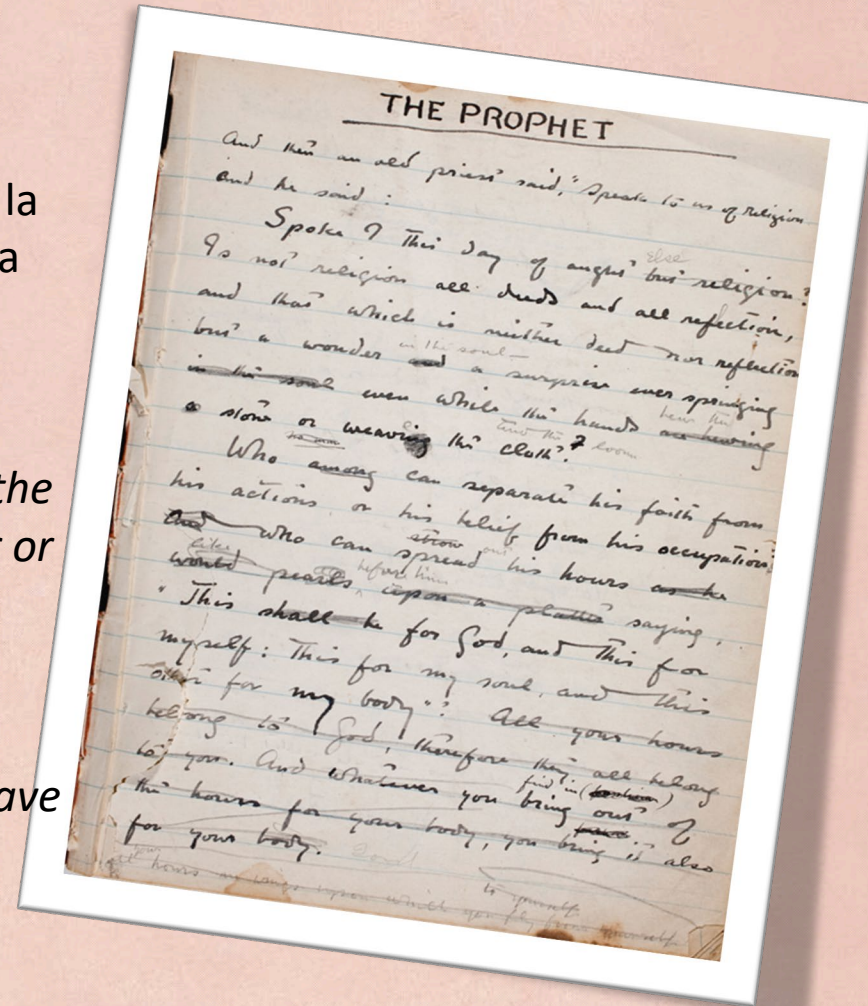 la
a
the
r or
ave
THE PROPHET
And then an old priest said, "Speak to us of religion
and he said :
Spoke I this day of aught else but religion?
Is not religion all deeds and all reflection,
and that which is neither deed nor reflection
but a wonder and in the soul a surprise ever springing
in the soul even while the hands are hewing hew the
a stone or weaving the cloth? tend the loom
Who among can separate his faith from
his actions or his belief from his occupations;
And who can strow spread out his hours as he
would like pearls before him upon a platter saying,
"This shall be for God, and this for
myself: This for my soul, and this
other for my body"? All your hours
belong to God, therefore they all belong
to you. And whatever you bring out find in of
the hours for your body, you bring it also
for your body. Soul
hours wings upon which you fly from
to yourself